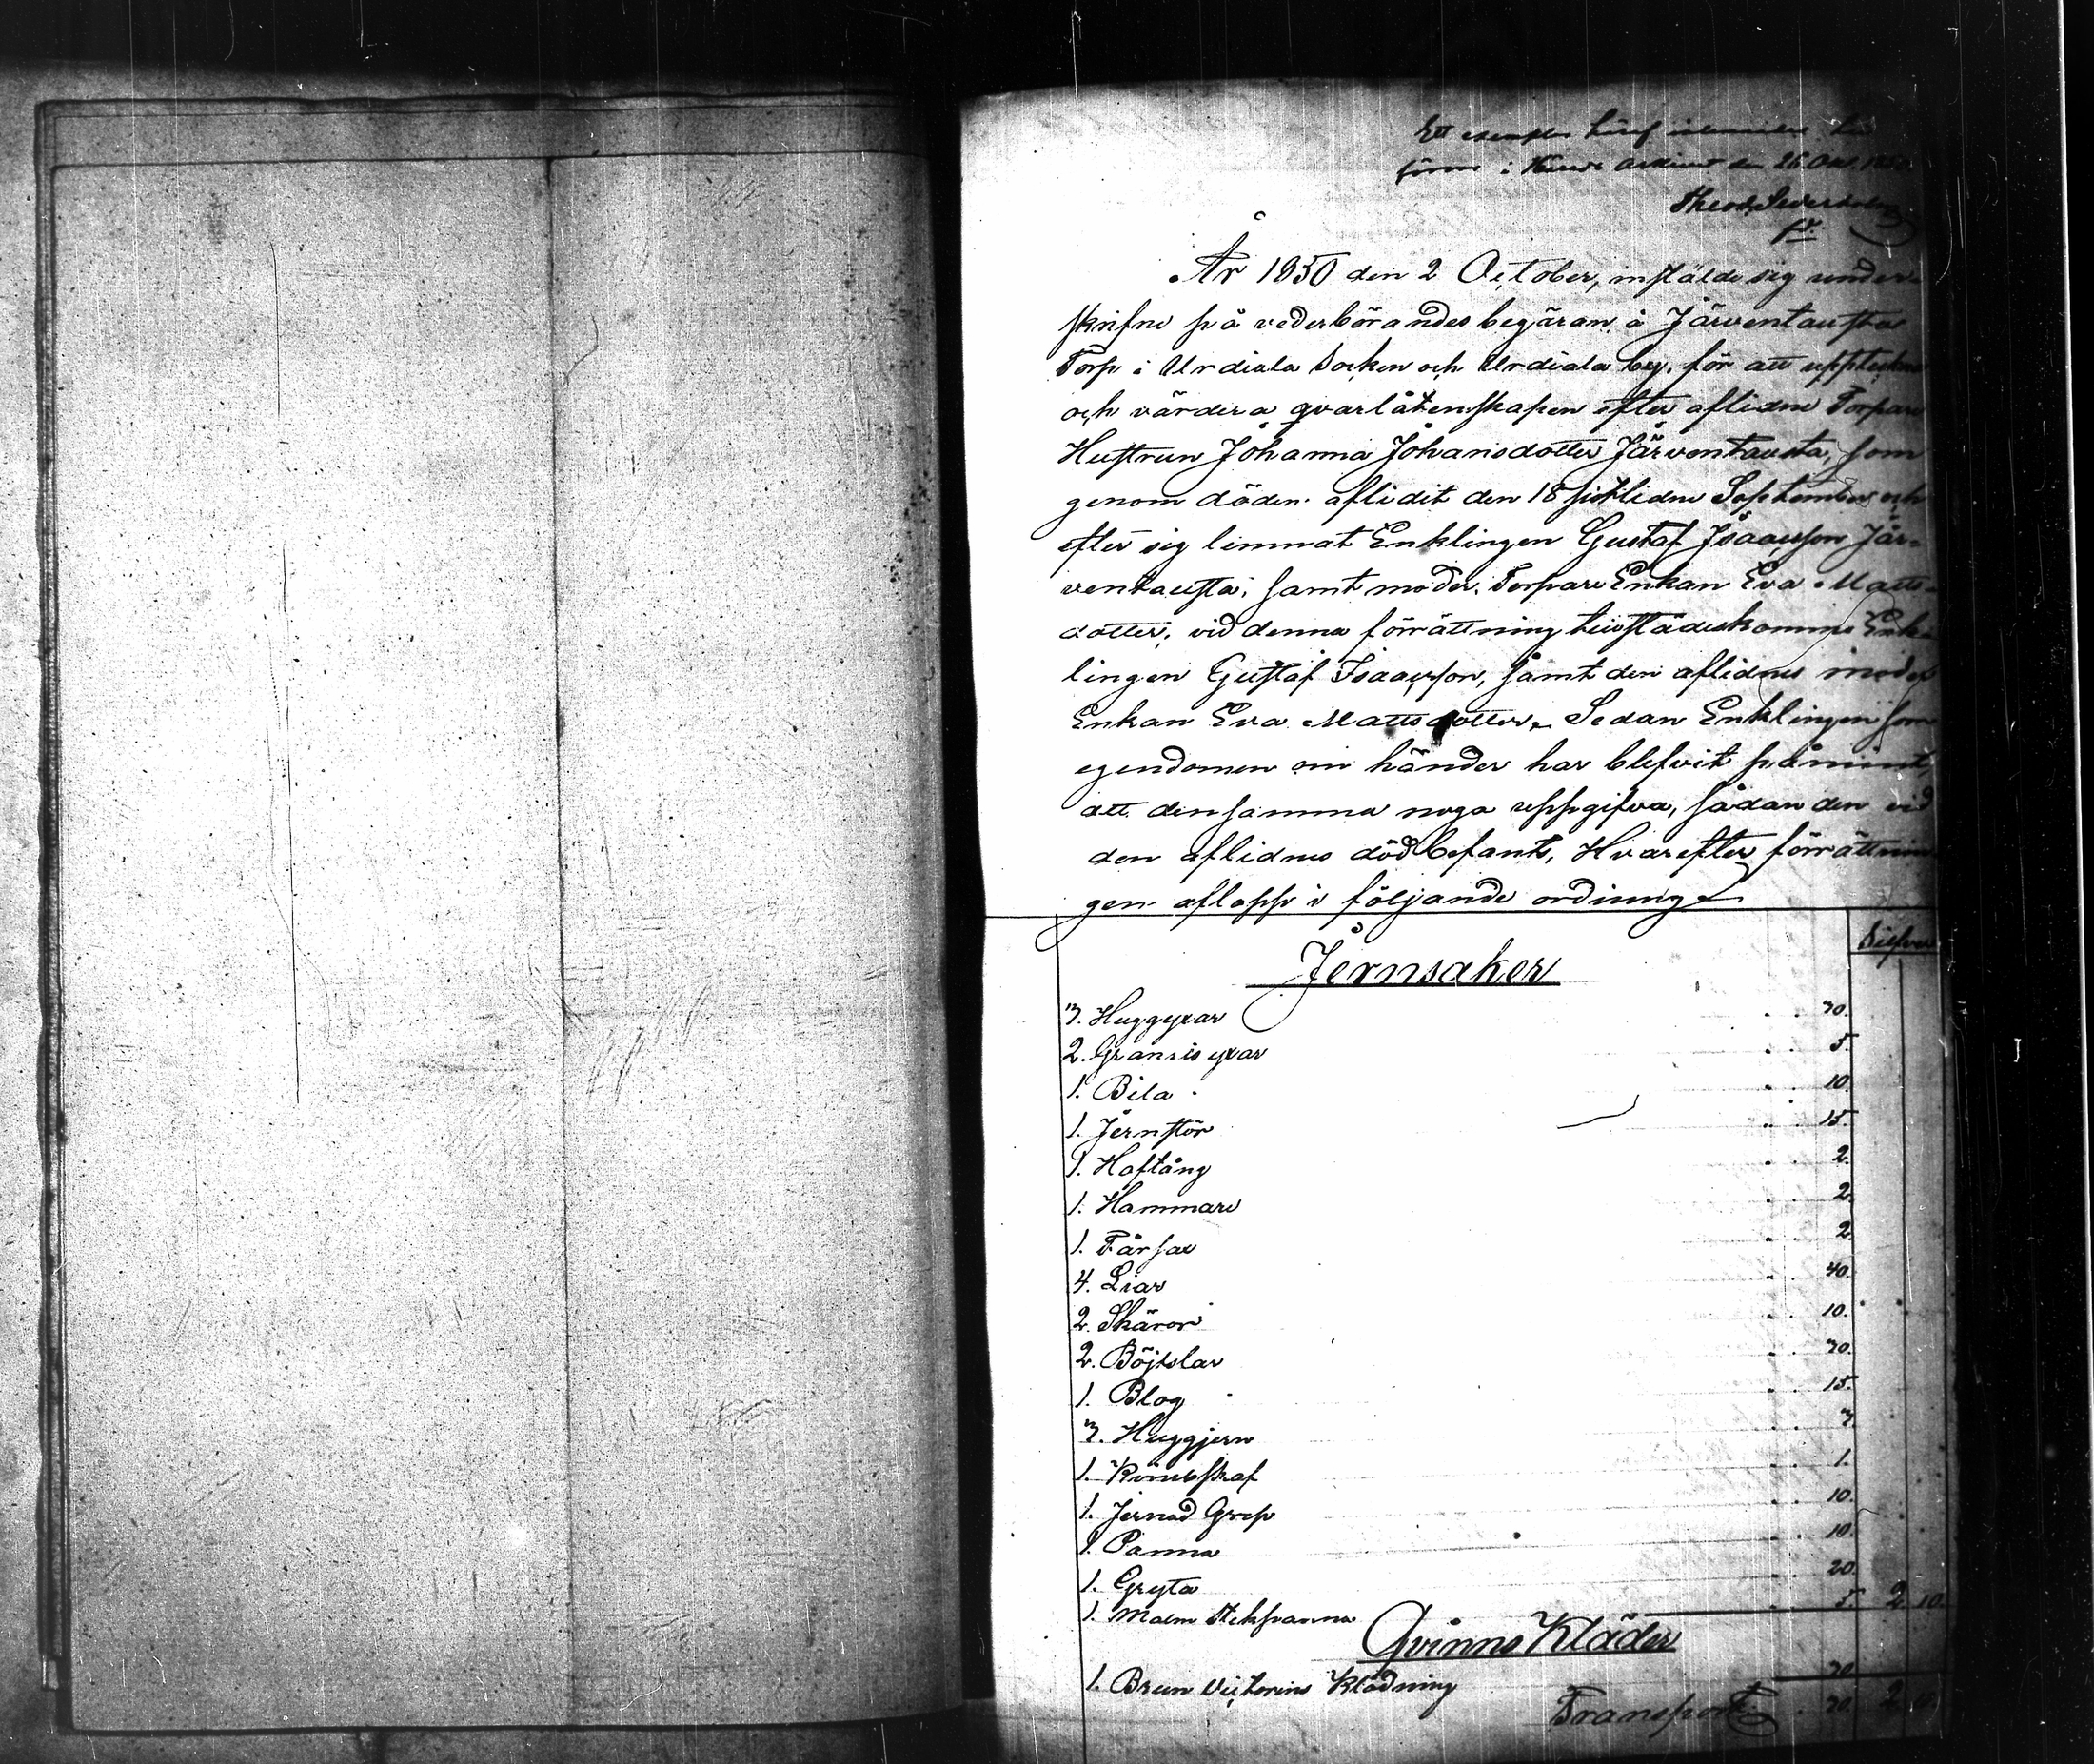 Ett exemplar häraf inlemnades
i Härads Arkivet den 26 Oct. 1850.
Theod. Sederholm
År 1850 den 2 October, instälde sig under-
skrifne på vederbörandes begäran å Järventausta
Torp i Urdiala Socken och Urdiala by, för att uppteckna
och värdera qvarlåtenskapen efter aflidne Torpare
Hustrun Johanna Johansdotter Järventausta, som
genom döden aflidit den 18 sistlidne September och
efter sig lemnat Enklingen Gustaf Isaacsson Jär-
ventausta, samt moder, Torpare Enkan Eva Matts-
dotter, vid denna förrättning tillstädeskommo Enk-
lingen Gustaf Isaacsson, samt den aflidnes moder
Enkan Eva Mattsdotter. Sedan Enklingen som
egendomen om händer har blefvit påmint,
att densamma noga uppgifva, sådan den vid
den aflidnes död befants, Hvarefter förrättnin-
gen aflopp i följande ordning
Silfver
Jernsaker
3. Huggyxar 30.
2. Granris yxar 5.
1. Bila 10.
1. Jernstör 15.
1. Hoftång 2.
1. Hammare 2.
1. Fårsax 2.
4. Liar 40.
2. Skäror 10.
2. Böjslar 30.
1. Plog 15.
3. Huggjern 3.
1. 1.
1. Jernad Grep 10.
1. Panna 10.
1. Gryta 20.
1. Malm Stekpanna 5. 2 10.
Qvinns Kläder
1. Brun Victorins Klädning 30
Transport 30. 2 10